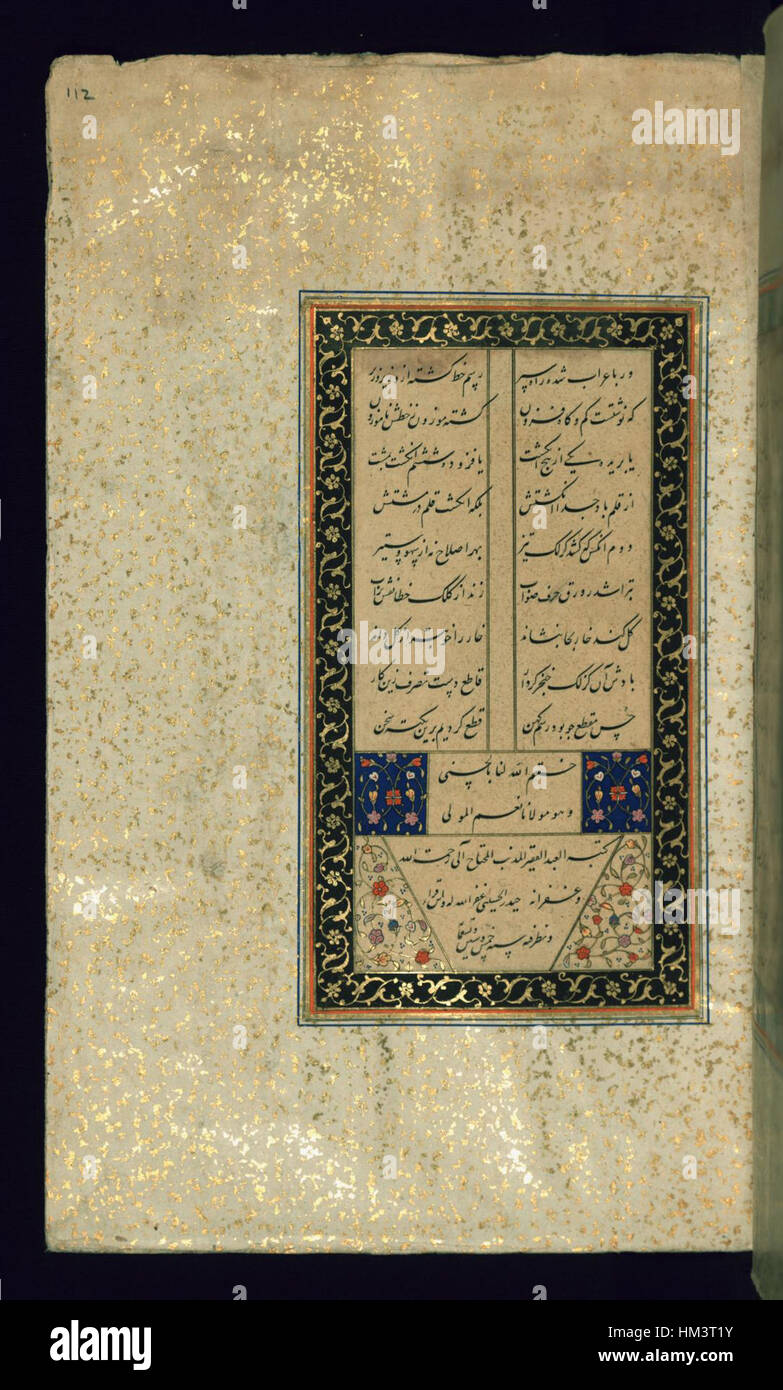 112
ور باعراب شده راه سپر رسم خط گشته ازو زیر و زبر
که نوشتست کم و گاه فزون گشته موزون ز خطش ناموزون
یا بریده یکی از پنج انگشت یا فزوده ششم انگشت بمشت
از قلم باد جدا انگشتش بلکه انگشت قلم در مشتش
دوم آنکس که کشد گزلک تیز بهر اصلاح نه از سهو و ستیز
بتراشد ز ورق حرف صواب زند از کلک خطا نقش بر آب
گل کند خار بجا بنشاند خار را خوبتر از گل داند
بادش آن گزلک خنجر کردار قاطع دست تصرف زین کار
حسن مقطع چو بود رسم کهن قطع کردیم برین نکته سخن
ختم الله لنا بالحسنی
وهو مولانا نعم المولی
کتبه العبد الفقیر المذنب المحتاج الی رحمت الله
وغفرانه حیدر الحسینی غفر الله له
سنه
alamy
a
alamy
Image ID: HM3T1Y
www.alamy.com